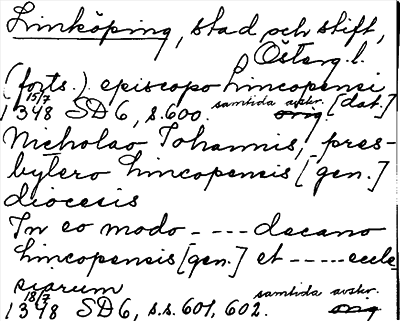 Linköping, stad och stift,
Österg.l.
(forts.) episcopo Lincopensi
1348 15/7 SD 6, s. 600. samtida avskr. orig [dat.]
Nicholao Johannis, pres-
bytero Lincopensis [gen.]
diocesis
In eo modo - - - - decano
Lincopensis [gen.] et - - - - - eccle
siarum
1348 18/7 SD 6, s.s. 601, 602. samtida avskr. orig